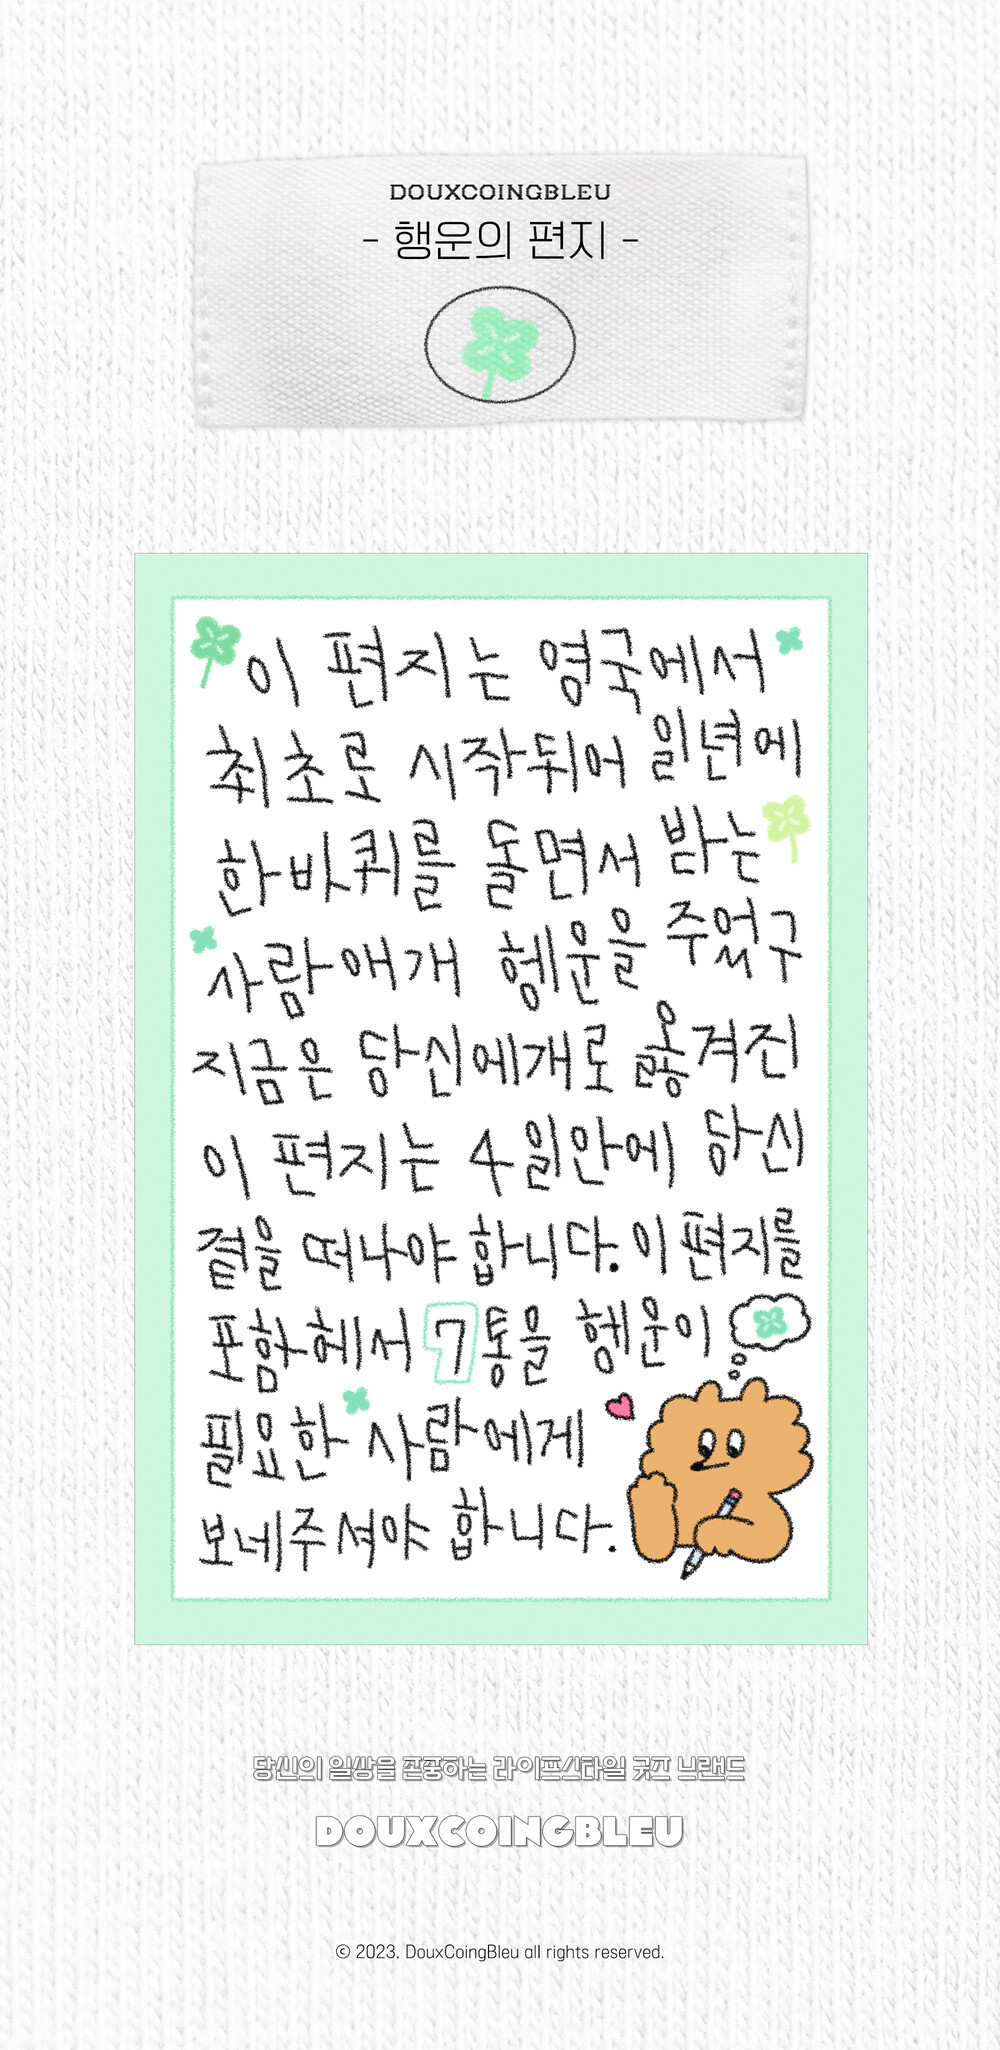 DOUXCOINGBLEU
- 행운의 편지 -
이 편지는 영국에서
최초로 시작뒤어 일년에
한바퀴를 돌면서 밤는
사람애개 헹운을 주었구
지금은 당신에개로 옯겨진
이 편지는 4일안에 당신
곁을 떠나야 합니다. 이 편지를
포함헤서 7통을 헹운이
필요한 사람에게
보네주셔야 합니다.
당신의 일상을 존중하는 라이프스타일 굿즈 브랜드
DOUXCOINGBLEU
© 2023. DouxCoingBleu all rights reserved.